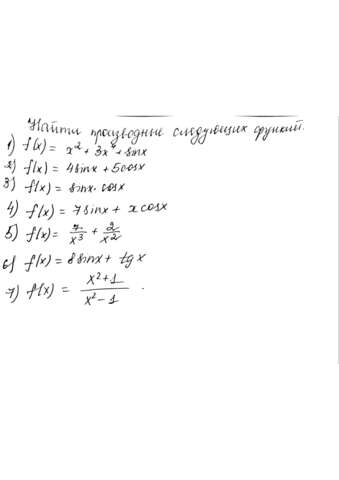 Найти производные следующих функций.
1) f(x) = x² + 3x⁴ + sinx
2) f(x) = 4sinx + 5cosx
3) f(x) = sinx · cosx
4) f(x) = 7sinx + x cosx
5) f(x) = 7/x³ + 2/x²
6) f(x) = 8sinx + tgx
7) f(x) = x²+1 / x²-1 .